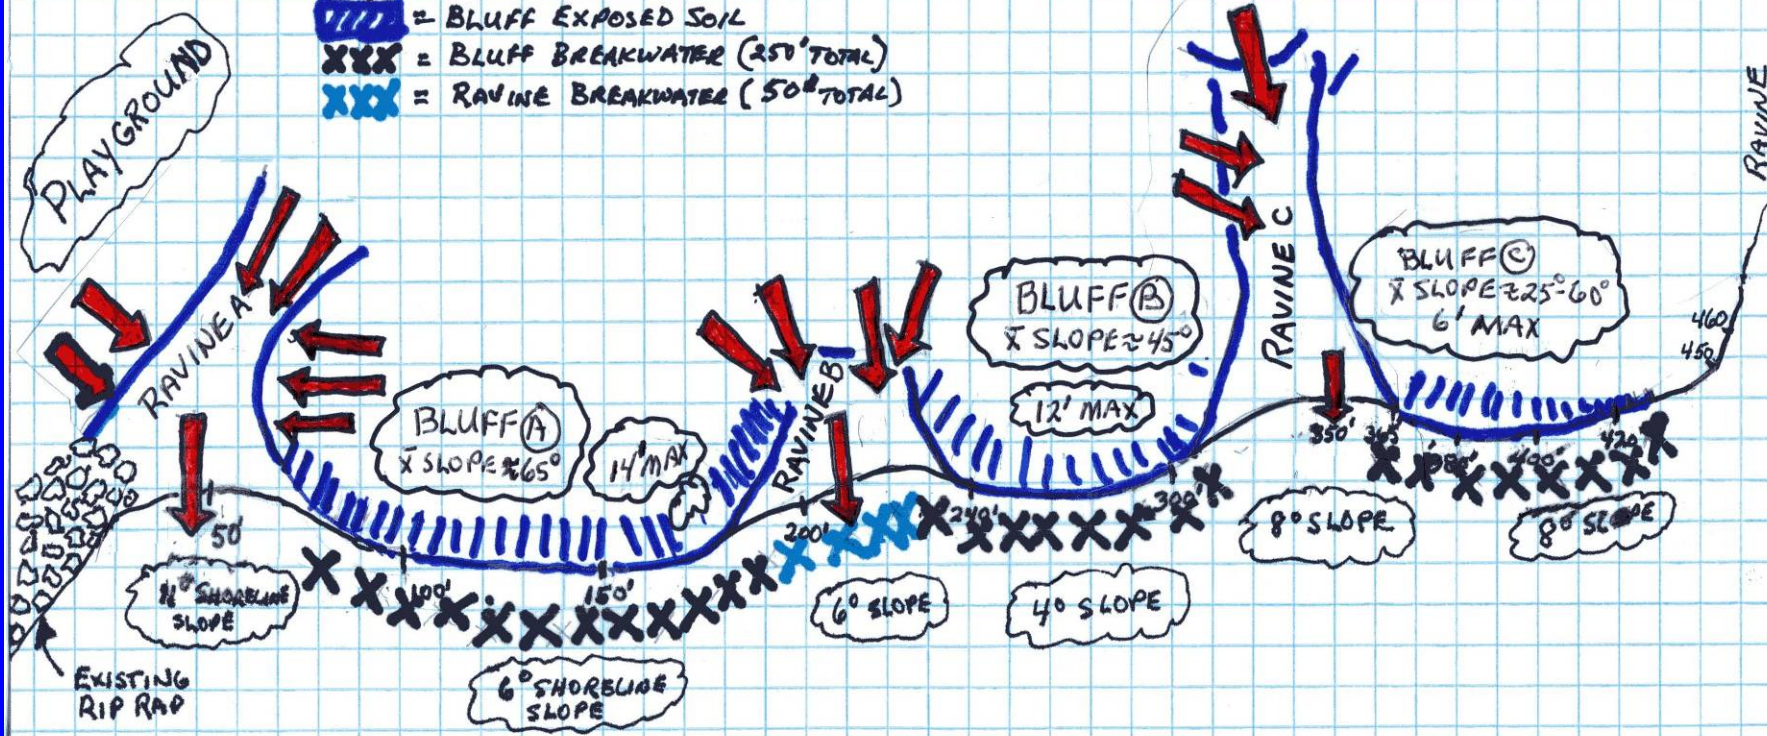 = BLUFF EXPOSED SOIL
XXX = BLUFF BREAKWATER (250' TOTAL)
XXX = RAVINE BREAKWATER (50' TOTAL)
PLAYGROUND
RAVINE A
BLUFF Ⓐ
x̄ SLOPE ≈ 65°
14' MAX
RAVINE B
BLUFF Ⓑ
x̄ SLOPE ≈ 45°
12' MAX
RAVINE C
BLUFF Ⓒ
x̄ SLOPE ≈ 25°-60°
6' MAX
RAVINE
460
450
50'
100'
150'
200'
240'
300'
350'
365'
380'
400'
420
SHORELINE
SLOPE
6° SHORELINE
SLOPE
6° SLOPE
4° SLOPE
8° SLOPE
8° SLOPE
EXISTING
RIP RAP